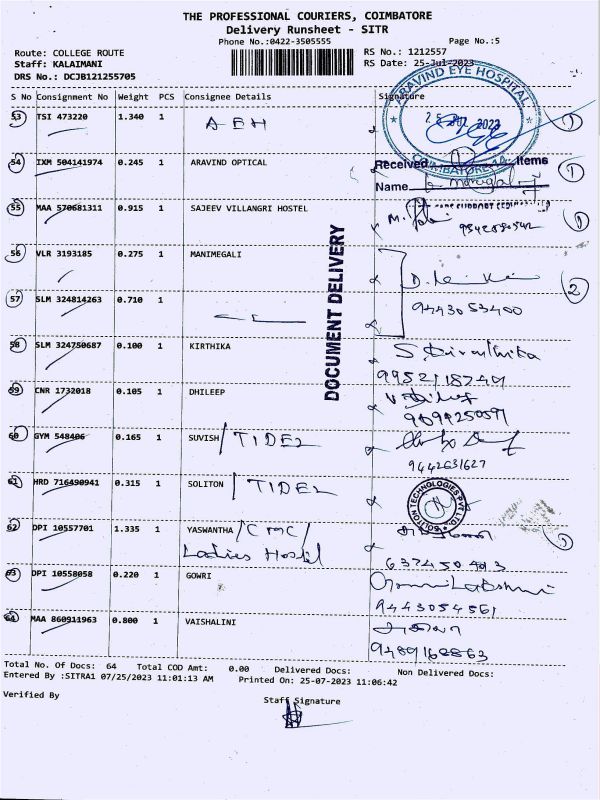 THE PROFESSIONAL COURIERS, COIMBATORE
Delivery Runsheet - SITR
Phone No.:0422-3505555 Page No.:5
Route: COLLEGE ROUTE RS No.: 1212557
Staff: KALAIMANI RS Date: 25-Jul-2023
DRS No.: DCJB121255705
S No Consignment No Weight PCS Consignee Details Signature
ARAVIND EYE HOSPITAL
COIMBATORE
53 TSI 473220 1.340 1 AEH
54 IXM 504141974 0.245 1 ARAVIND OPTICAL Received Items
Name
55 MAA 570681311 0.915 1 SAJEEV VILLANGRI HOSTEL
56 VLR 3193185 0.275 1 MANIMEGALI
57 SLM 324814263 0.710 1
9443053400
DOCUMENT DELIVERY
58 SLM 324750687 0.100 1 KIRTHIKA
59 CNR 1732018 0.105 1 DHILEEP
60 GYM 548406 0.165 1 SUVISH / TIDEL
9442631627
61 HRD 716490941 0.315 1 SOLITON / TIDEL
SOLITON TECHNOLOGIES PVT LTD
62 DPI 10557701 1.335 1 YASWANTHA / CMC /
Ladies Hostel
63 DPI 10558058 0.220 1 GOWRI
9443054561
64 MAA 860911963 0.800 1 VAISHALINI
9489162863
Total No. Of Docs: 64 Total COD Amt: 0.00 Delivered Docs: Non Delivered Docs:
Entered By :SITRA1 07/25/2023 11:01:13 AM Printed On: 25-07-2023 11:06:42
Verified By Staff Signature